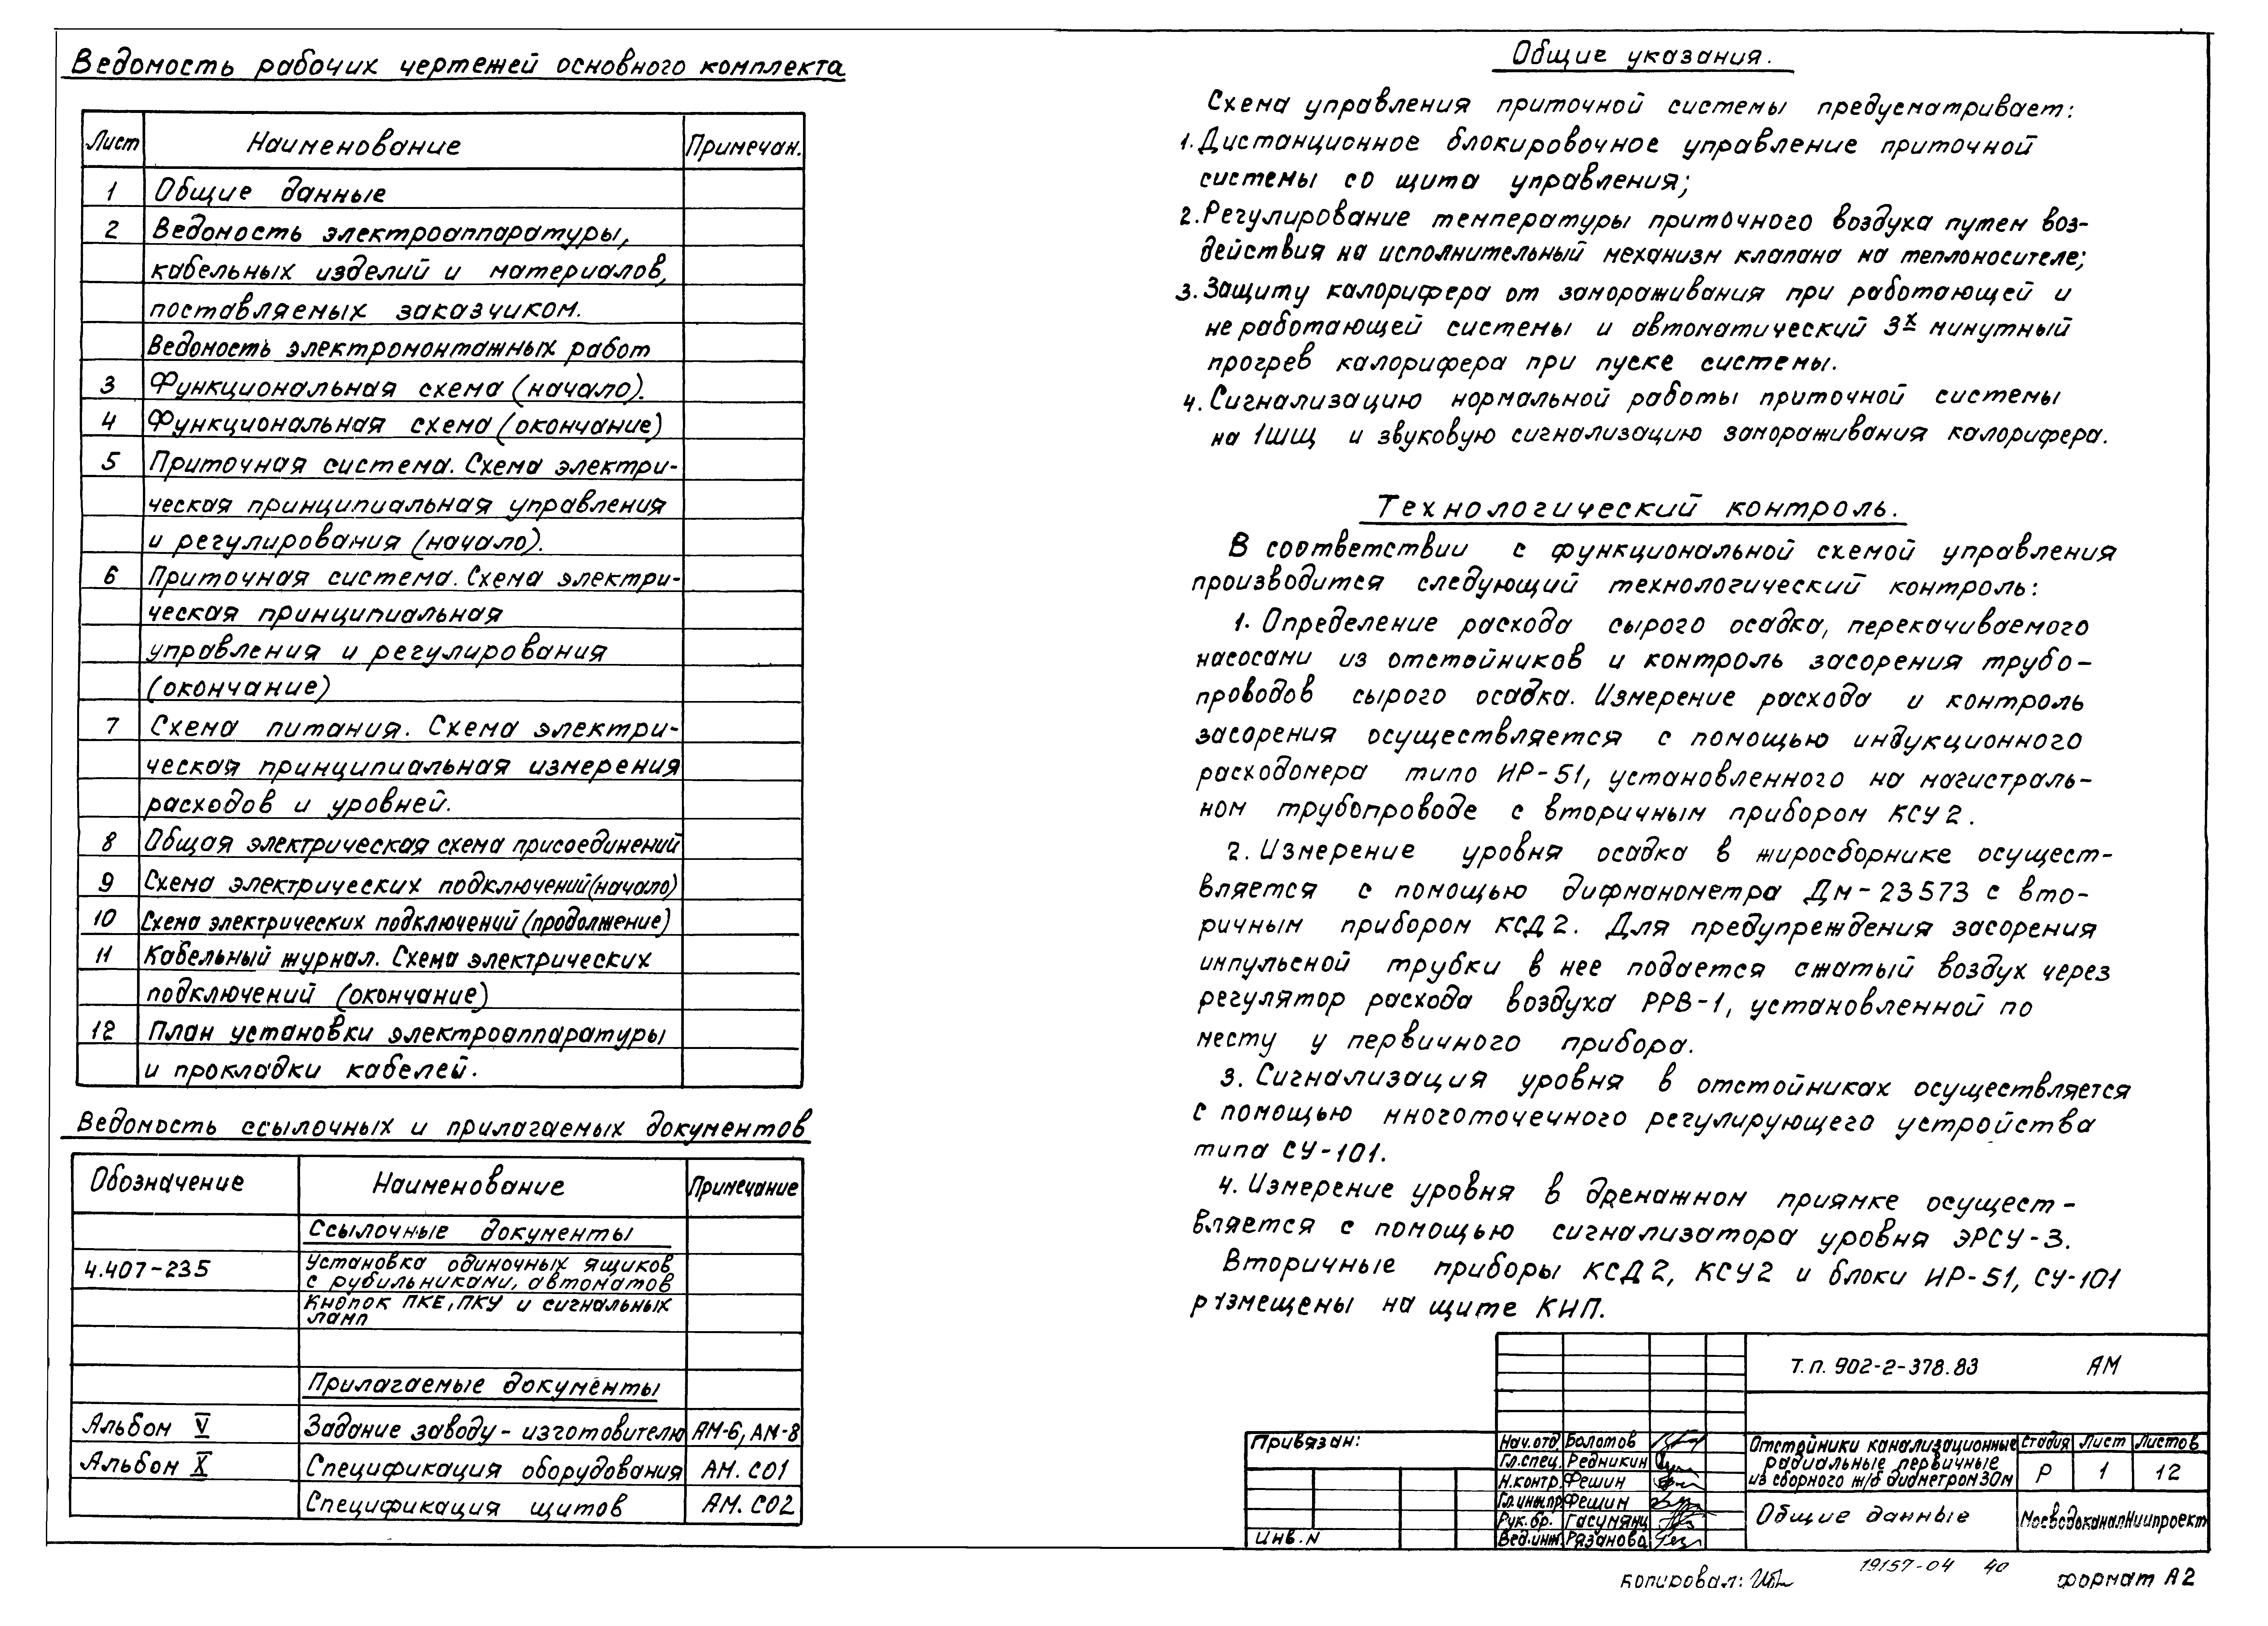 Ведомость рабочих чертежей основного комплекта
Лист Наименование Примечан.
1 Общие данные
2 Ведомость электроаппаратуры,
кабельных изделий и материалов,
поставляемых заказчиком.
Ведомость электромонтажных работ
3 Функциональная схема (начало).
4 Функциональная схема (окончание)
5 Приточная система. Схема электри-
ческая принципиальная управления
и регулирования (начало).
6 Приточная система. Схема электри-
ческая принципиальная
управления и регулирования
(окончание)
7 Схема питания. Схема электри-
ческая принципиальная измерения
расходов и уровней.
8 Общая электрическая схема присоединений
9 Схема электрических подключений (начало)
10 Схема электрических подключений (продолжение)
11 Кабельный журнал. Схема электрических
подключений (окончание)
12 План установки электроаппаратуры
и прокладки кабелей.
Ведомость ссылочных и прилагаемых документов
Обозначение Наименование Примечание
Ссылочные документы
4.407-235 Установка одиночных ящиков
с рубильниками, автоматов
Кнопок ПКЕ, ПКУ и сигнальных
ламп
Прилагаемые документы
Альбом V Задание заводу - изготовителю АМ-6, АМ-8
Альбом X Спецификация оборудования АМ. СО1
Спецификация щитов АМ. СО2
Общие указания.
Схема управления приточной системы предусматривает:
1. Дистанционное блокировочное управление приточной
системы со щита управления;
2. Регулирование температуры приточного воздуха путем воз-
действия на исполнительный механизм клапана на теплоносителе;
3. Защиту калорифера от замораживания при работающей и
не работающей системы и автоматический 3х минутный
прогрев калорифера при пуске системы.
4. Сигнализацию нормальной работы приточной системы
на 1ШЩ и звуковую сигнализацию замораживания калорифера.
Технологический контроль.
В соответствии с функциональной схемой управления
производится следующий технологический контроль:
1. Определение расхода сырого осадка, перекачиваемого
насосами из отстойников и контроль засорения трубо-
проводов сырого осадка. Измерение расхода и контроль
засорения осуществляется с помощью индукционного
расходомера типо ИР-51, установленного на магистраль-
ном трубопроводе с вторичным прибором КСУ2.
2. Измерение уровня осадка в жиросборнике осущест-
вляется с помощью дифманометра Дм-23573 с вто-
ричным прибором КСД2. Для предупреждения засорения
импульсной трубки в нее подается сжатый воздух через
регулятор расхода воздуха РРВ-1, установленной по
месту у первичного прибора.
3. Сигнализация уровня в отстойниках осуществляется
с помощью многоточечного регулирующего устройства
типа СУ-101.
4. Измерение уровня в дренажном приямке осущест-
вляется с помощью сигнализатора уровня ЭРСУ-3.
Вторичные приборы КСД2, КСУ2 и блоки ИР-51, СУ-101
размещены на щите КИП.
Т.п. 902-2-378.83 АМ
Привязан:
Инв. N
Нач.отд Болотов
Гл.спец. Редникин
Н.контр. Фешин
Гл.инж.пр. Фешин
Рук.бр. Гасумянц
Вед.инж. Рязанова
Отстойники канализационные
радиальные первичные
из сборного ж/б диаметром 30м
Стадия Лист Листов
Р 1 12
Общие данные
МосводоканалНиипроект
Копировал:
19157-04 40
формат А2